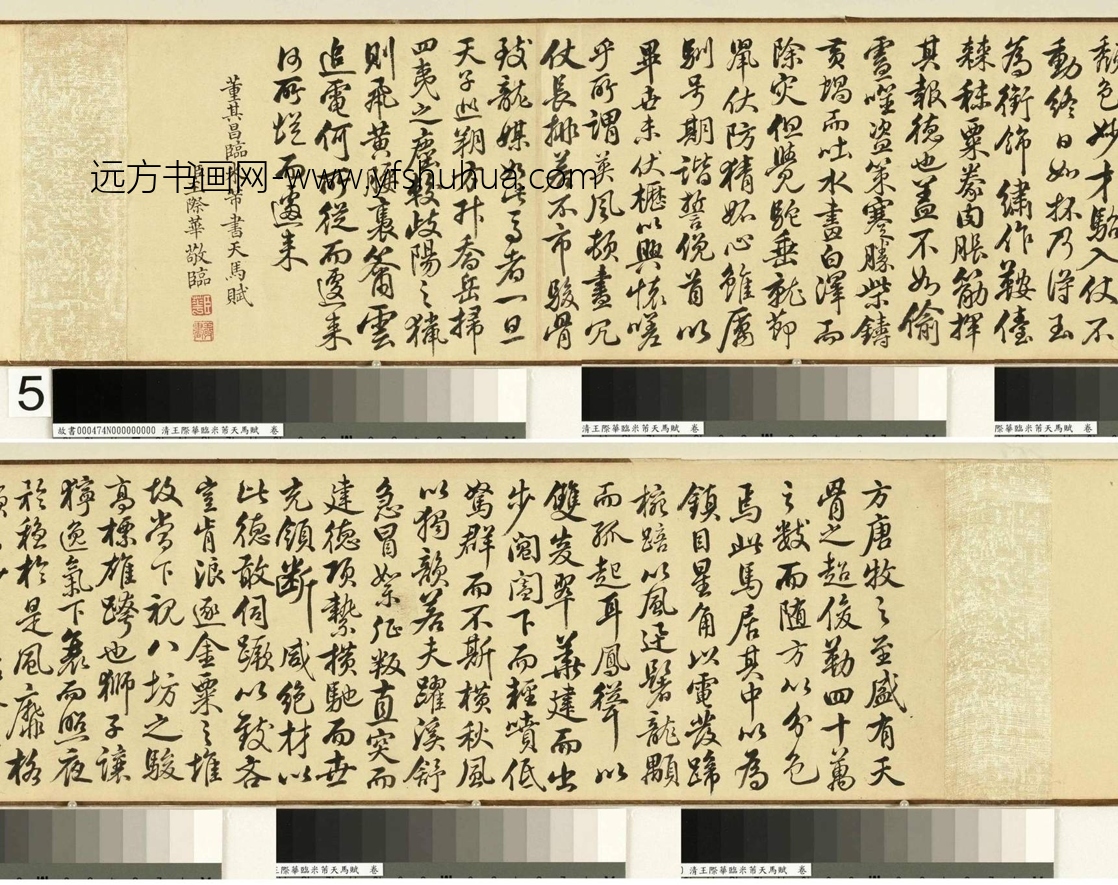 色妙才駘入仗不
動終日如坏乃得玉
為銜飾繡作鞍儓
棘秣粟豢肉脹筋
其報德也蓋不如偷
盧噬盜策蹇勝柴鑄
黃蝸而吐水畫白澤而
除災但覺駝垂就節
鼠伏防猜妬心雖厲
馴号期諧誓俛首以
畢世未伏櫪以興懷嗟
乎所謂英風頓盡冗
仗長排若不市駿骨
致龍媒如此馬者一旦
天子巡朔方升喬岳掃
四夷之塵較岐陽之獵
則飛黃腰裊躡雲
追電何所從而遽來
何所從而遽來
董其昌臨米芾書天馬賦
王際華敬臨
远方书画网-www.yfshuhua.com
5
故書000474N000000000 清王際華臨米芾天馬賦 卷
清王際華臨米芾天馬賦 卷
清王際華臨米芾天馬賦 卷
方唐牧之至盛有天
骨之超俊勒四十萬
之數而隨方以分色
焉此馬居其中以為
鎮目星角以電發蹄
椀踣以風迅鬐龍顒
而孤起耳鳳聳以
雙發翠華建而出
步閶闔下而輕噴低
駑群而不斯橫秋風
以獨韻若夫躍溪舒
急冒絮征叛直突而
建德項縶橫馳而世
充領斷咸絕材以
比德敢伺蹶以致吝
豈肯浪逐金粟之堆
故當下視八坊之駿
高標雄跨也獅子讓
獰逸氣下衰而照夜
於穩於是風靡格
王際華臨米芾天馬賦 卷
清王際華臨米芾天馬賦 卷